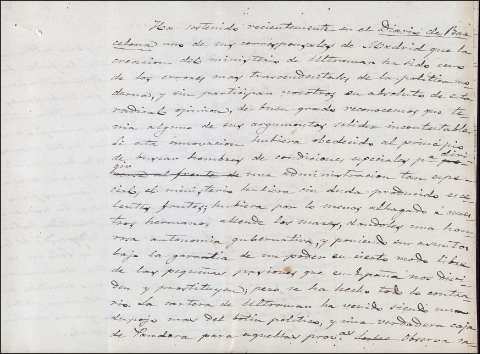 Ha sostenido recientemente en el Diario de Bar-
celona uno de sus corresponsales de Madrid que la
creacion del ministerio de Ultramar ha sido uno
de los errores mas trascendentales de la politica mo
derna, y sin participar nosotros en absoluto de esta
radical opinion, de buen grado reconocemos que te
nia alguno de sus argumentos solidez incontestable
Si esta innovacion hubiera obedecido al principio
de buscar hombres de condiciones especiales pª diri
gir al frente de una administracion tan espe-
cial, el ministerio hubiera sin duda producido esce
lentes frutos; hubiera por lo menos alhagado a nues
tros hermanos allende los mares, dandoles una hon
rosa autonomia gubernativa, y poniendo sus asuntos
bajo la garantia de un poder en cierto modo libre
de las pequeñas pasiones que en España nos divi-
den y prostituyen; pero se ha hecho todo lo contra
rio. La cartera de Ultramar ha venido siendo un
despojo mas del botin politico, y una verdadera caja
de Pandora para aquellas provªˢ. Observa